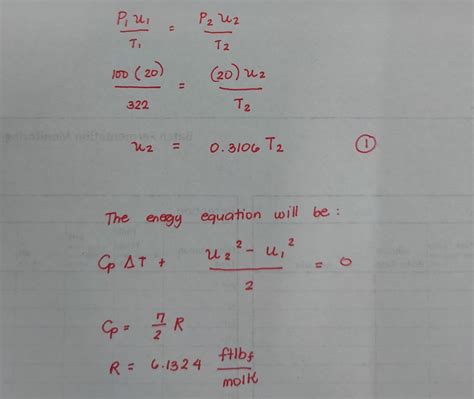 P₁u₁/T₁ = P₂u₂/T₂
100(20)/322 = (20)u₂/T₂
u₂ = 0.3106 T₂ ①
The energy equation will be:
Cp ΔT + (u₂² - u₁²)/2 = 0
Cp = 7/2 R
R = 6.1324 ftlbf/molK